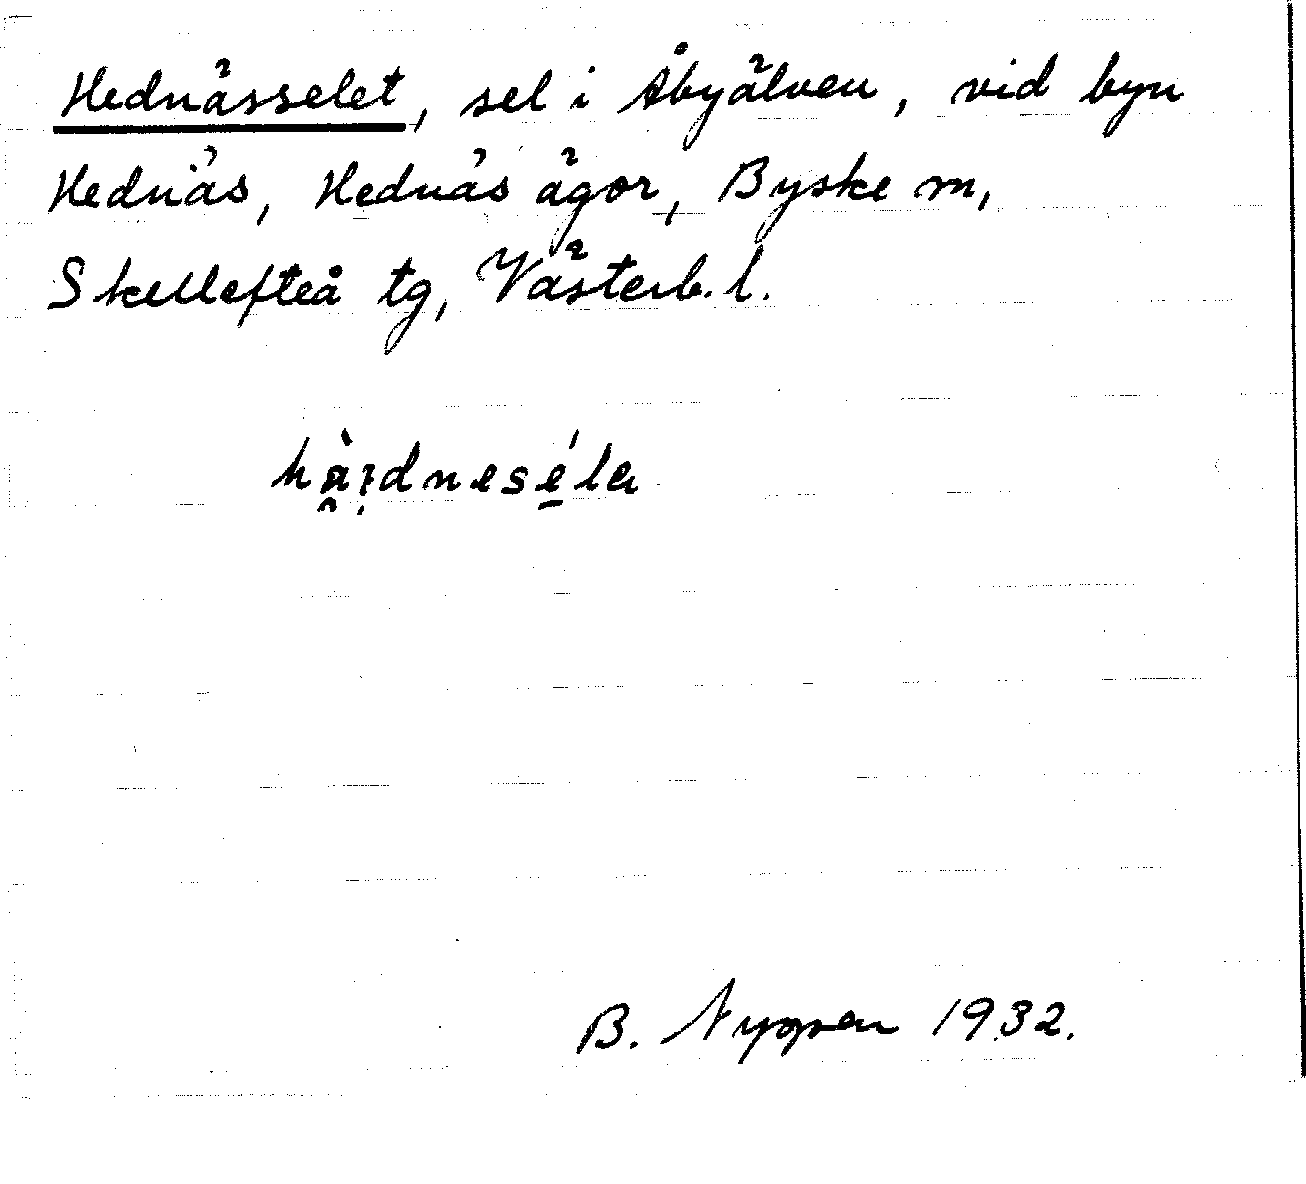 Hednässelet, sel i Åbyälven, vid byn
Hednäs, Hednäs ägor, Byske sn,
Skellefteå tg, Västerb. l.
B. Nyman 1932.